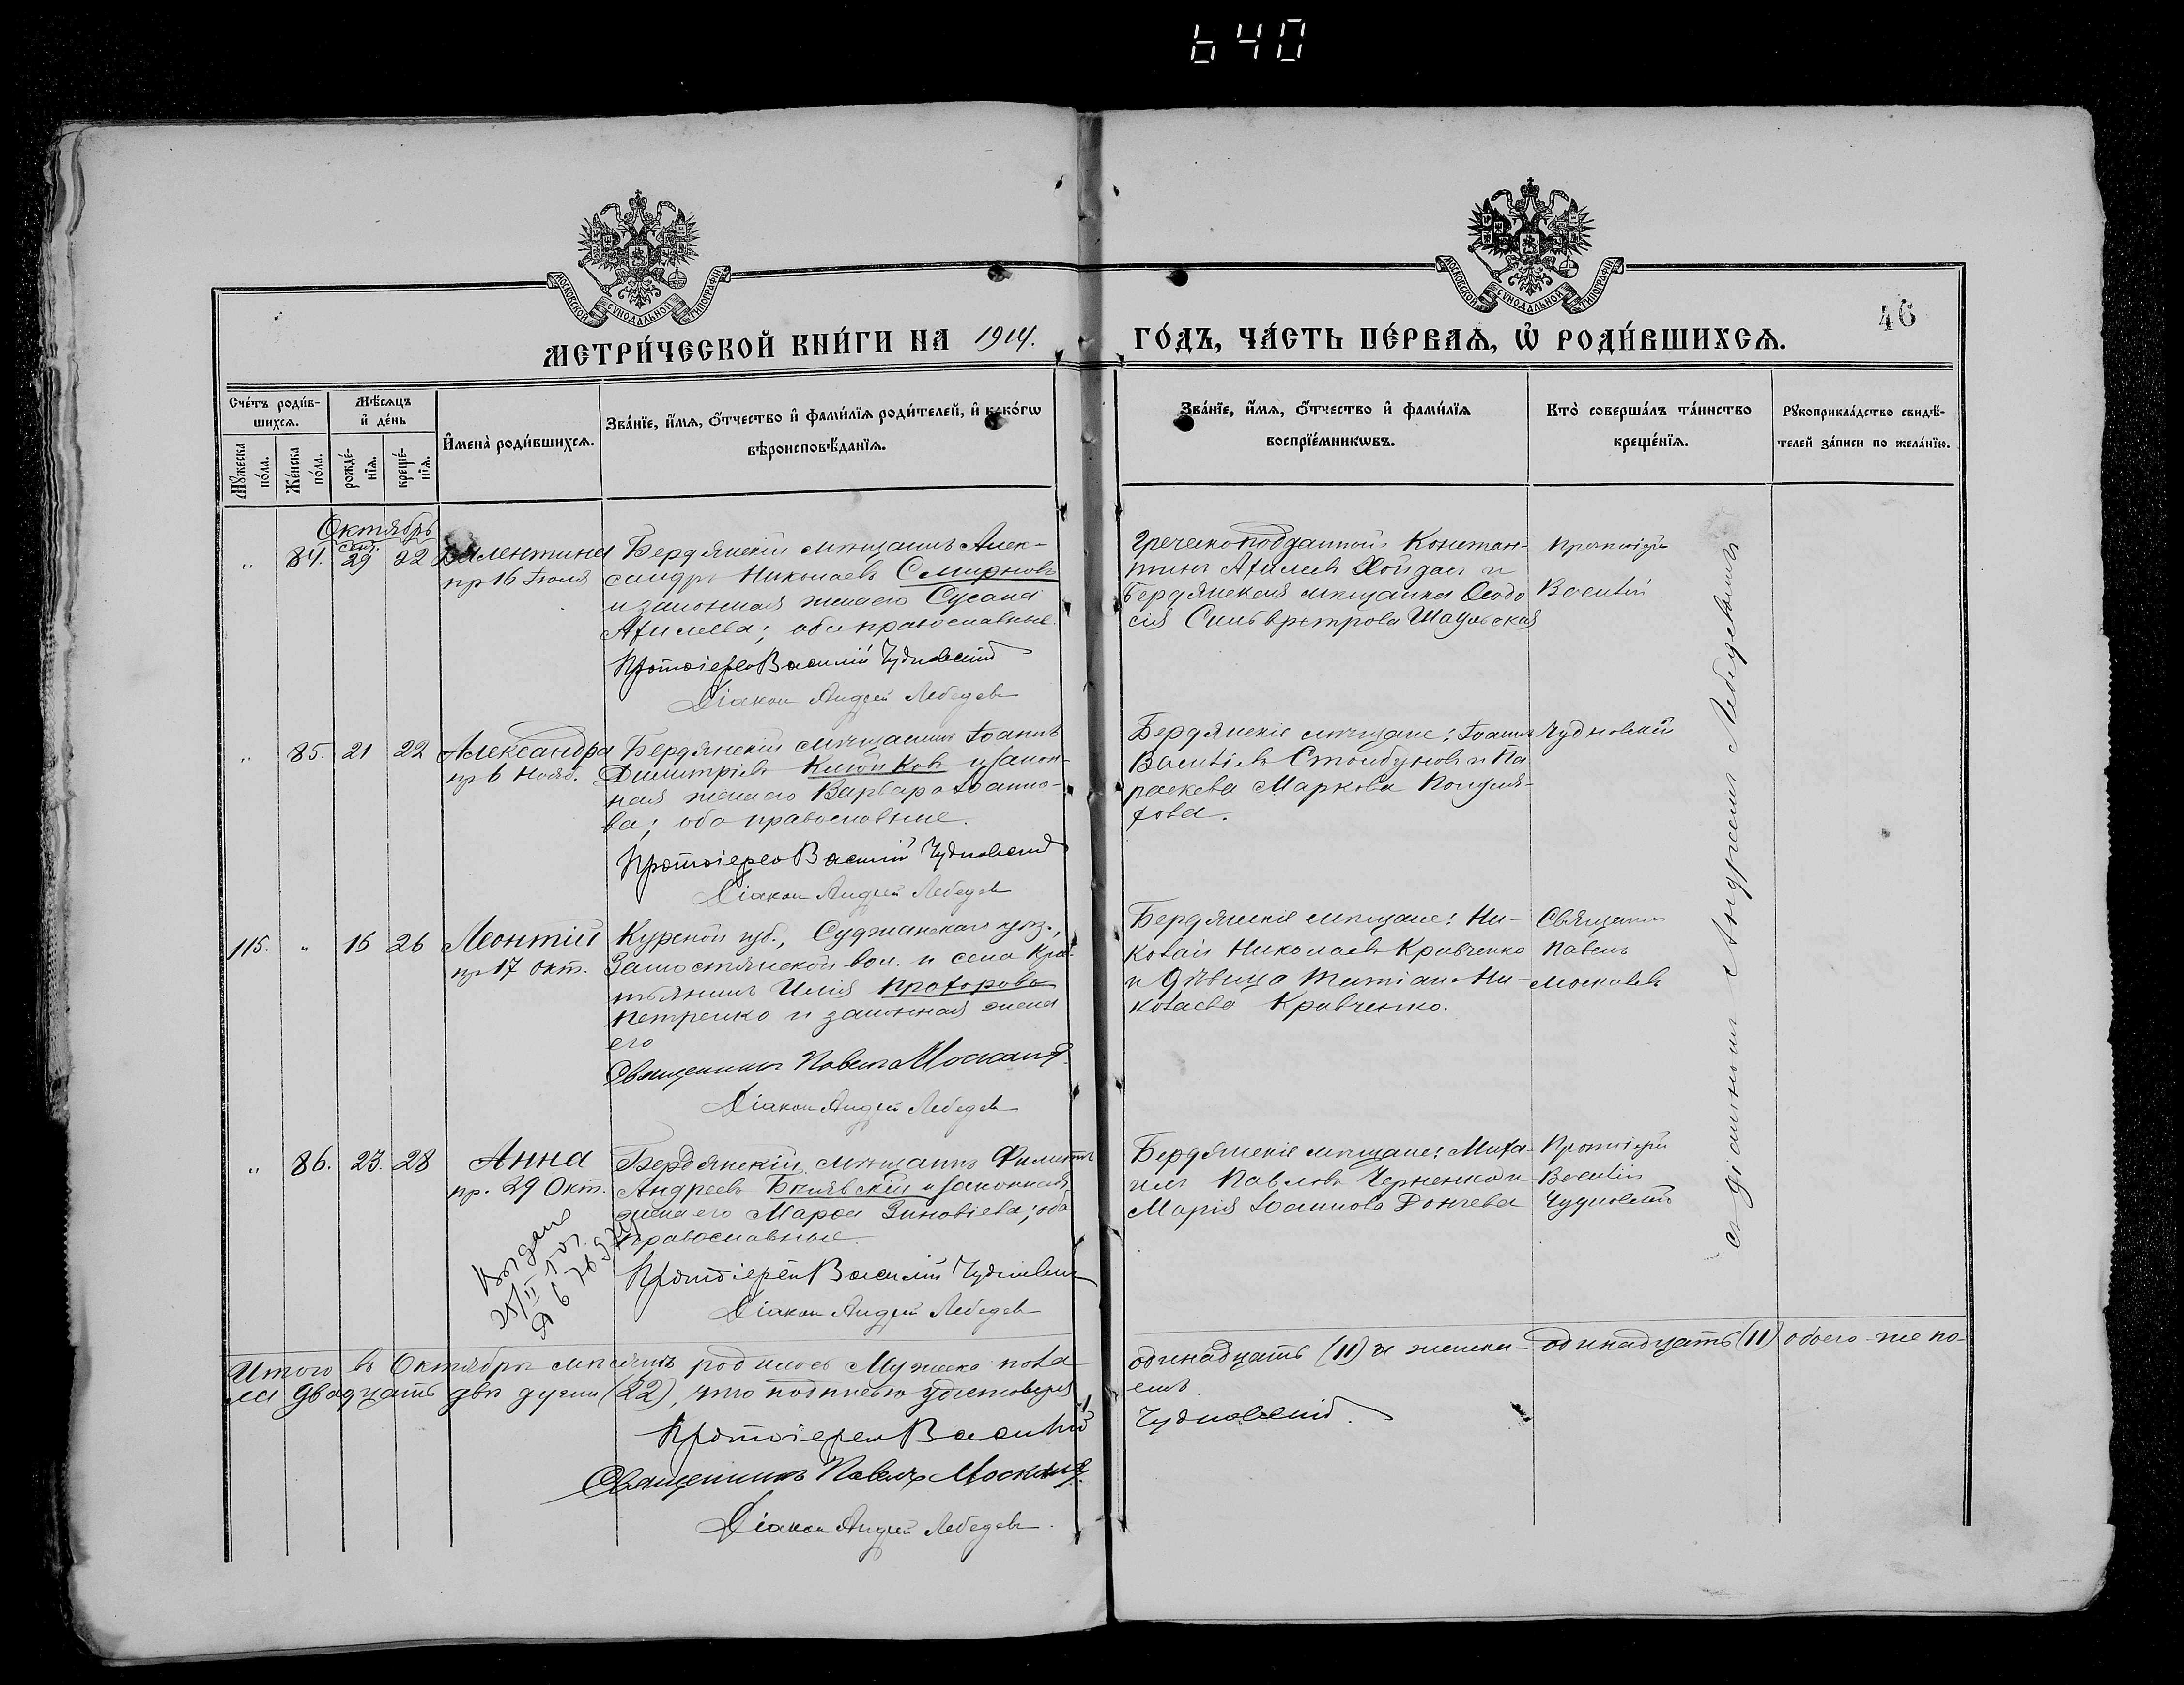 640
МОСКОВСКОЙ СУНОДАЛЬНОЙ ТИПОГРАФІИ
МОСКОВСКОЙ СУНОДАЛЬНОЙ ТИПОГРАФІИ
46
МЕТРИ́ЧЕСКОЙ КНИ́ГИ НА 1914. ГО́ДЪ, ЧА́СТЬ ПЕ́РВАѦ, Ѽ РОДИ́ВШИХСѦ.
Сче́тъ роди́в-
шихсѧ.
Мꙋ́жеска по́ла.
Же́нска по́ла.
Мѣ́сѧцъ
и҆ де́нь
рожде́-
нїѧ.
креще́-
нїѧ.
И҆мена̀ роди́вшихсѧ.
Зва́нїе, и҆́мѧ, ѻ҆́тчество и҆ фами́лїѧ роди́телей, и҆ како́гѡ
вѣроисповѣ́данїѧ.
Зва́нїе, и҆́мѧ, ѻ҆́тчество и҆ фами́лїѧ
воспрїе́мникѡвъ.
Кто̀ соверша́лъ та́инство
креще́нїѧ.
Рꙋкоприкла́дство свидѣ́-
телей за́писи по жела́нїю.
Октябрь
„ 84. Сент. 29 22 Валентина
пр 16 Іюля
Бердянскій мѣщанинъ Алек-
сандръ Николаевъ Смирновъ
и законная жена его Сусана
Ахилева; оба православные.
Протоіерей Василій Чудновскій
Діаконъ Андрей Лебедевъ
Греческоподданной Констан-
тинъ Ахилевъ и
Бердянская мѣщанка Ѳеодо
сія
Протоіерей
Василій
„ 85. 21 22 Александра
пр 6 Нояб.
Бердянскій мѣщанинъ Іоаннъ
Димитріевъ и закон-
ная жена его Варвара Іоанно-
ва; оба православные.
Протоіерей Василій Чудновскій
Діаконъ Андрей Лебедевъ
Бердянскіе мѣщане: Іоаннъ
Василіевъ и Па
раскева Маркова
Чудновскій
115. „ 16 26 Леонтій
пр 17 Окт.
Курской губ., Суджанскаго уѣз.,
Замостянской вол. и села Кре-
тьянинъ Илія Прохоровъ
Петренко и законная жена
его
Священникъ Павелъ
Діаконъ Андрей Лебедевъ
Бердянскіе мѣщане: Ни-
колай Николаевъ Кравченко
и дѣвица Татіана Ни-
колаева Кравченко.
Священникъ
Павелъ
„ 86. 23. 28 Анна
пр. 29 Окт.
Бердянскій мѣщанинъ Филиппъ
Андреевъ и законная
жена его Марѳа Зиновіева; оба
православные.
Протоіерей Василій Чудновскій
Діаконъ Андрей Лебедевъ
Бердянскіе мѣщане: Миха-
илъ Павловъ Черненко и
Марія Іоаннова Дончева
Протоіерей
Василій
Чудновскій
съ діакономъ Андреемъ Лебедевымъ
Итого въ Октябрѣ мѣсяцѣ родилось Мужеска пола одинадцать (11) и женска — одинадцать (11) обоего-же по-
ла двадцать двѣ души (22), что подписью удостовѣряемъ.
Протоіерей Василій Чудновскій.
Священникъ Павелъ
Діаконъ Андрей Лебедевъ.